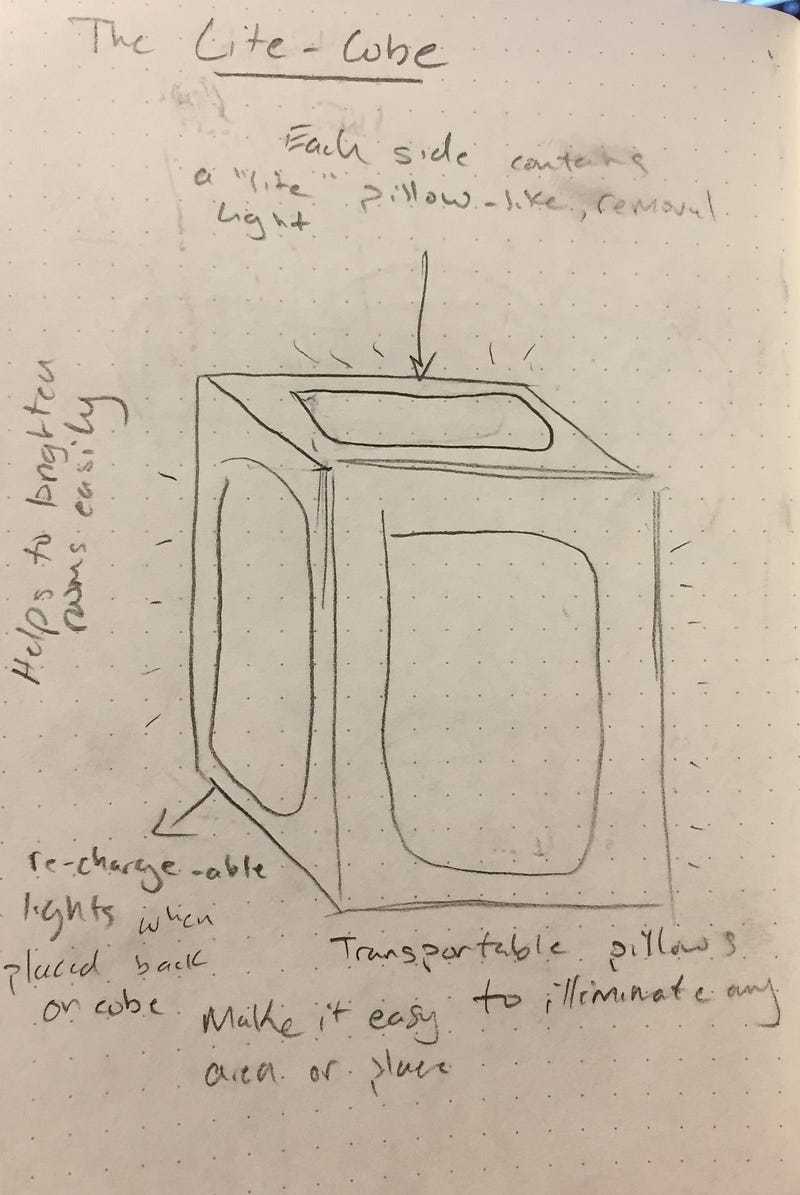 The Lite-Cube
Each side contains
a "lite" pillow-like, removal
light
Helps to brighten
rooms easily
re-charge-able
lights when
placed back
on cube
Transportable pillows
Make it easy to illiminate any
area or place